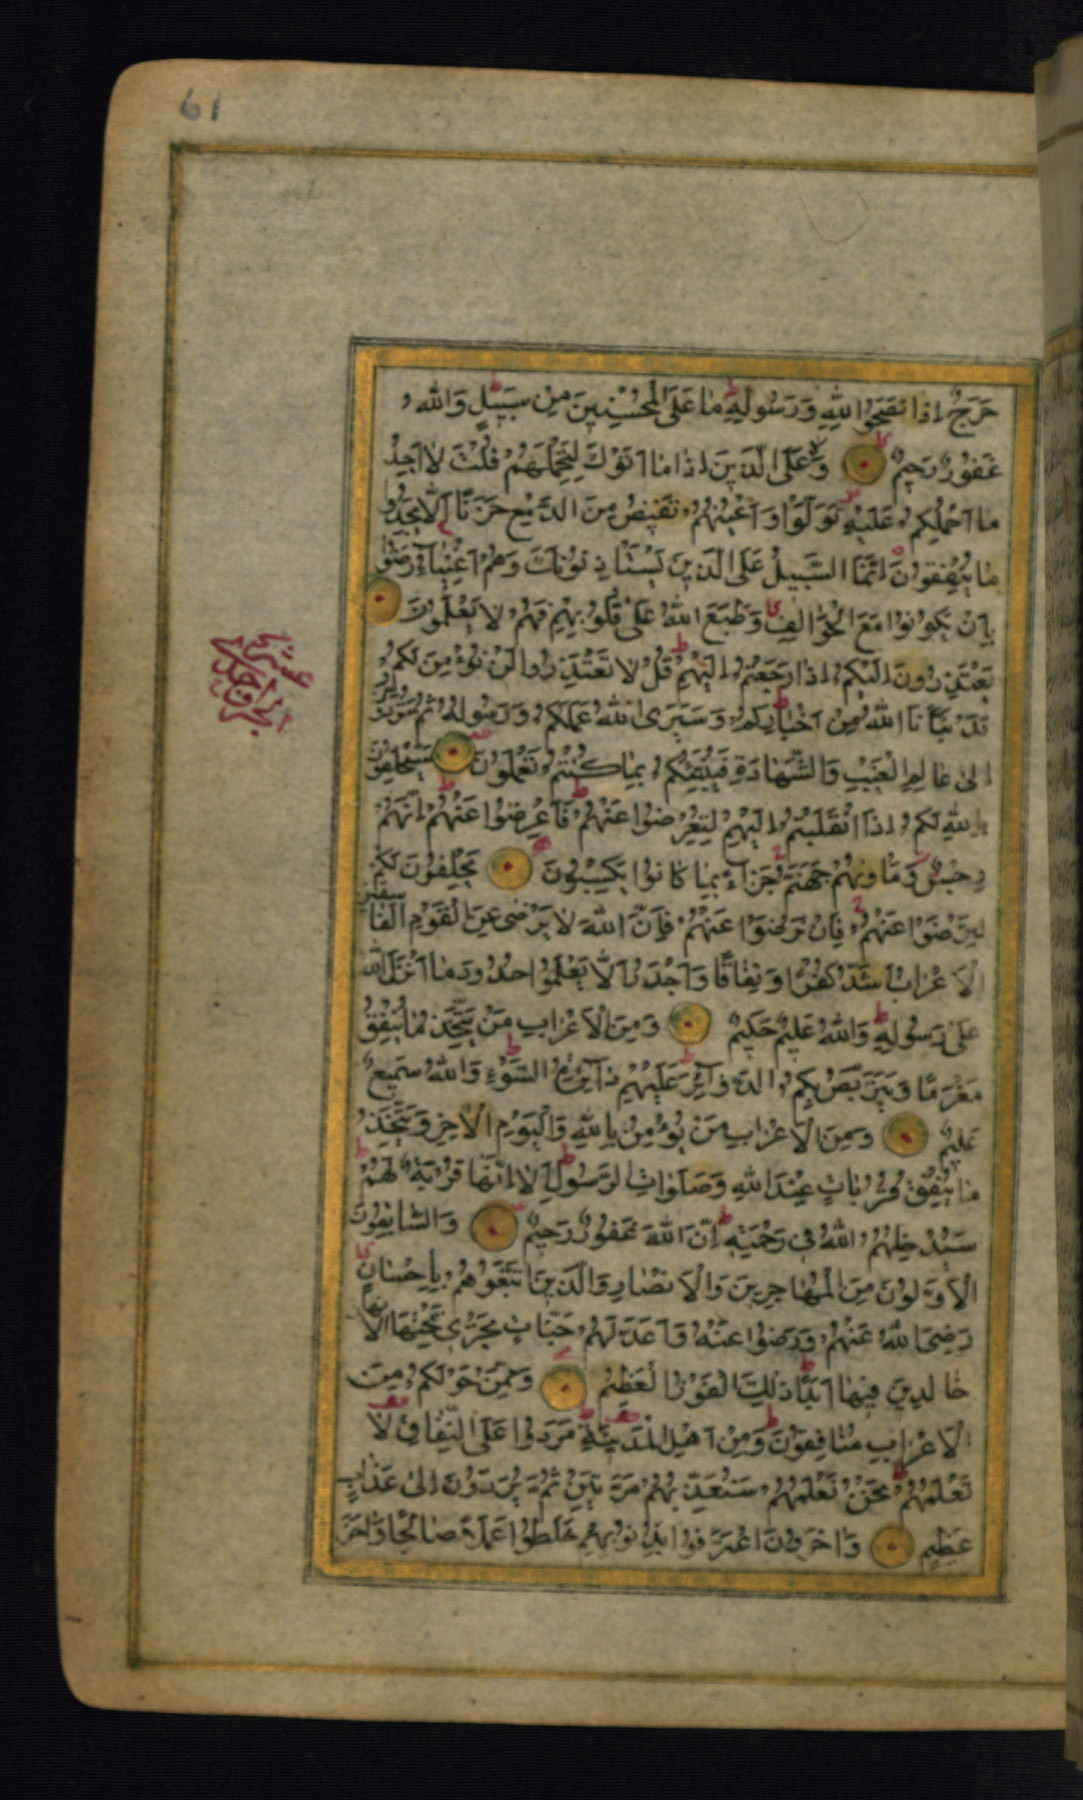 61
حَرَجٌ اِذا نَصَحُوا لِلّٰهِ وَرَسُولِهِ مَا عَلَى الْمُحْسِنِينَ مِنْ سَبِيلٍ وَاللّٰهُ
غَفُورٌ رَحِيمٌ وَلَا عَلَى الَّذِينَ اِذا مَا اَتَوْكَ لِتَحْمِلَهُمْ قُلْتَ لا اَجِدُ
مَا اَحْمِلُكُمْ عَلَيْهِ تَوَلَّوْا وَاَعْيُنُهُمْ تَفِيضُ مِنَ الدَّمْعِ حَزَنًا اَلَّا يَجِدُوا
مَا يُنْفِقُونَ اِنَّمَا السَّبِيلُ عَلَى الَّذِينَ يَسْتَاْذِنُونَكَ وَهُمْ اَغْنِيَاءُ رَضُوا
بِاَنْ يَكُونُوا مَعَ الْخَوَالِفِ وَطَبَعَ اللّٰهُ عَلَى قُلُوبِهِمْ فَهُمْ لا يَعْلَمُونَ
يَعْتَذِرُونَ اِلَيْكُمْ اِذا رَجَعْتُمْ اِلَيْهِمْ قُلْ لا تَعْتَذِرُوا لَنْ نُؤْمِنَ لَكُمْ
قَدْ نَبَّاَنَا اللّٰهُ مِنْ اَخْبَارِكُمْ وَسَيَرَى اللّٰهُ عَمَلَكُمْ وَرَسُولُهُ ثُمَّ تُرَدُّونَ
اِلى عَالِمِ الْغَيْبِ وَالشَّهَادَةِ فَيُنَبِّئُكُمْ بِمَا كُنْتُمْ تَعْمَلُونَ سَيَحْلِفُونَ
بِاللّٰهِ لَكُمْ اِذَا انْقَلَبْتُمْ اِلَيْهِمْ لِتُعْرِضُوا عَنْهُمْ فَاَعْرِضُوا عَنْهُمْ اِنَّهُمْ
رِجْسٌ وَمَاْوٰيهُمْ جَهَنَّمُ جَزَاءً بِمَا كَانُوا يَكْسِبُونَ يَحْلِفُونَ لَكُمْ
لِتَرْضَوْا عَنْهُمْ فَاِنْ تَرْضَوْا عَنْهُمْ فَاِنَّ اللّٰهَ لا يَرْضى عَنِ الْقَوْمِ الْفَاسِقِينَ
اَلْاَعْرَابُ اَشَدُّ كُفْرًا وَنِفَاقًا وَاَجْدَرُ اَلَّا يَعْلَمُوا حُدُودَ مَا اَنْزَلَ اللّٰهُ
عَلى رَسُولِهِ وَاللّٰهُ عَلِيمٌ حَكِيمٌ وَمِنَ الْاَعْرَابِ مَنْ يَتَّخِذُ مَا يُنْفِقُ
مَغْرَمًا وَيَتَرَبَّصُ بِكُمُ الدَّوَائِرَ عَلَيْهِمْ دَائِرَةُ السَّوْءِ وَاللّٰهُ سَمِيعٌ
عَلِيمٌ وَمِنَ الْاَعْرَابِ مَنْ يُؤْمِنُ بِاللّٰهِ وَالْيَوْمِ الْاٰخِرِ وَيَتَّخِذُ
مَا يُنْفِقُ قُرُبَاتٍ عِنْدَ اللّٰهِ وَصَلَوَاتِ الرَّسُولِ اَلَا اِنَّهَا قُرْبَةٌ لَهُمْ
سَيُدْخِلُهُمُ اللّٰهُ فِي رَحْمَتِهِ اِنَّ اللّٰهَ غَفُورٌ رَحِيمٌ وَالسَّابِقُونَ
الْاَوَّلُونَ مِنَ الْمُهَاجِرِينَ وَالْاَنْصَارِ وَالَّذِينَ اتَّبَعُوهُمْ بِاِحْسَانٍ
رَضِيَ اللّٰهُ عَنْهُمْ وَرَضُوا عَنْهُ وَاَعَدَّ لَهُمْ جَنَّاتٍ تَجْرِي تَحْتَهَا الْاَنْهَارُ
خَالِدِينَ فِيهَا اَبَدًا ذٰلِكَ الْفَوْزُ الْعَظِيمُ وَمِمَّنْ حَوْلَكُمْ مِنَ
الْاَعْرَابِ مُنَافِقُونَ وَمِنْ اَهْلِ الْمَدِينَةِ مَرَدُوا عَلَى النِّفَاقِ لا
تَعْلَمُهُمْ نَحْنُ نَعْلَمُهُمْ سَنُعَذِّبُهُمْ مَرَّتَيْنِ ثُمَّ يُرَدُّونَ اِلى عَذَابٍ
عَظِيمٍ وَاٰخَرُونَ اعْتَرَفُوا بِذُنُوبِهِمْ خَلَطُوا عَمَلًا صَالِحًا وَاٰخَرَ